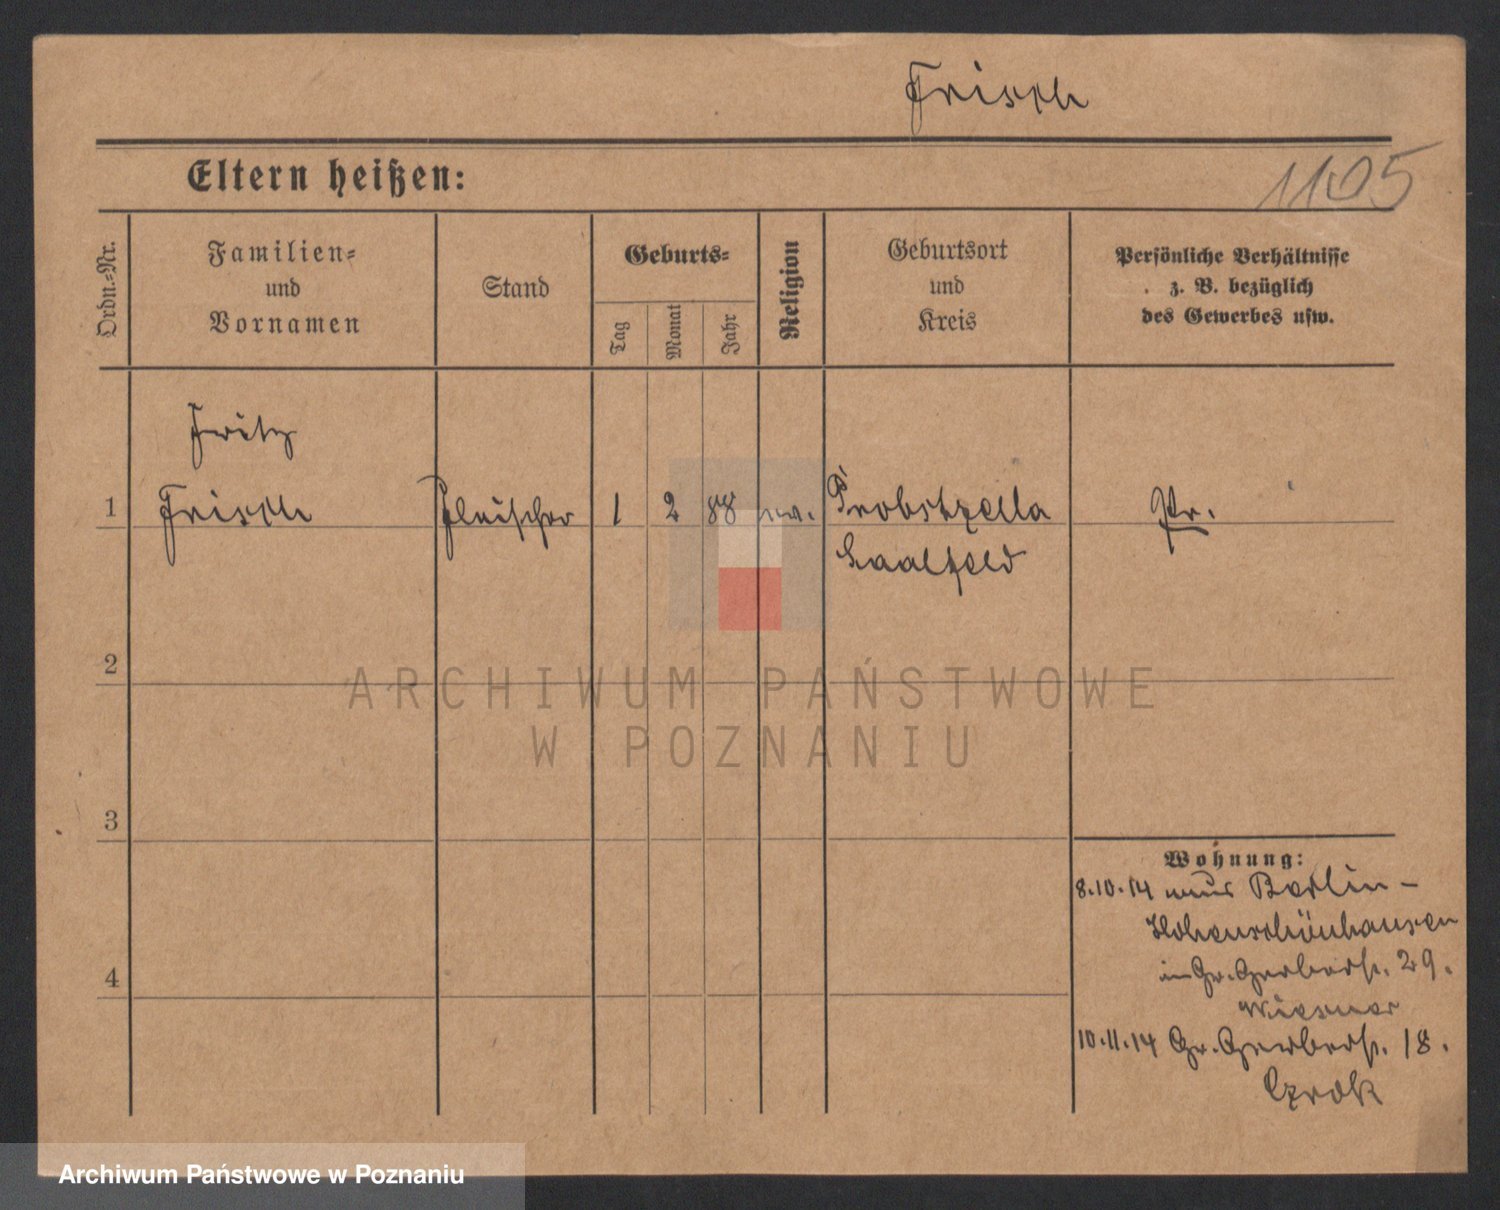 Frisch
Eltern heißen:
1105
Ordn.=Nr.
Familien=
und
Vornamen
Stand
Geburts=
Tag
Monat
Jahr
Religion
Geburtsort
und
Kreis
Persönliche Verhältnisse
z. B. bezüglich
des Gewerbes usw.
Fritz
1 Frisch Fleischer 1 2 88 ev. Probstzella Pr.
Saalfeld
2
ARCHIWUM PAŃSTWOWE
W POZNANIU
3
Wohnung:
8.10.14 aus Berlin-
Hohenschönhausen
in Gr. Gerberst. 29.
Wiesner
4
10.11.14 Gr. Gerberst. 18.
Archiwum Państwowe w Poznaniu